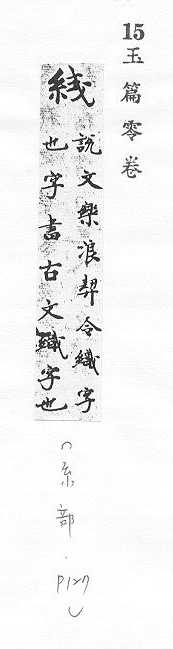 15玉篇零卷
說文樂浪挈令織字
也字書古文織字也
(糸部.P127)